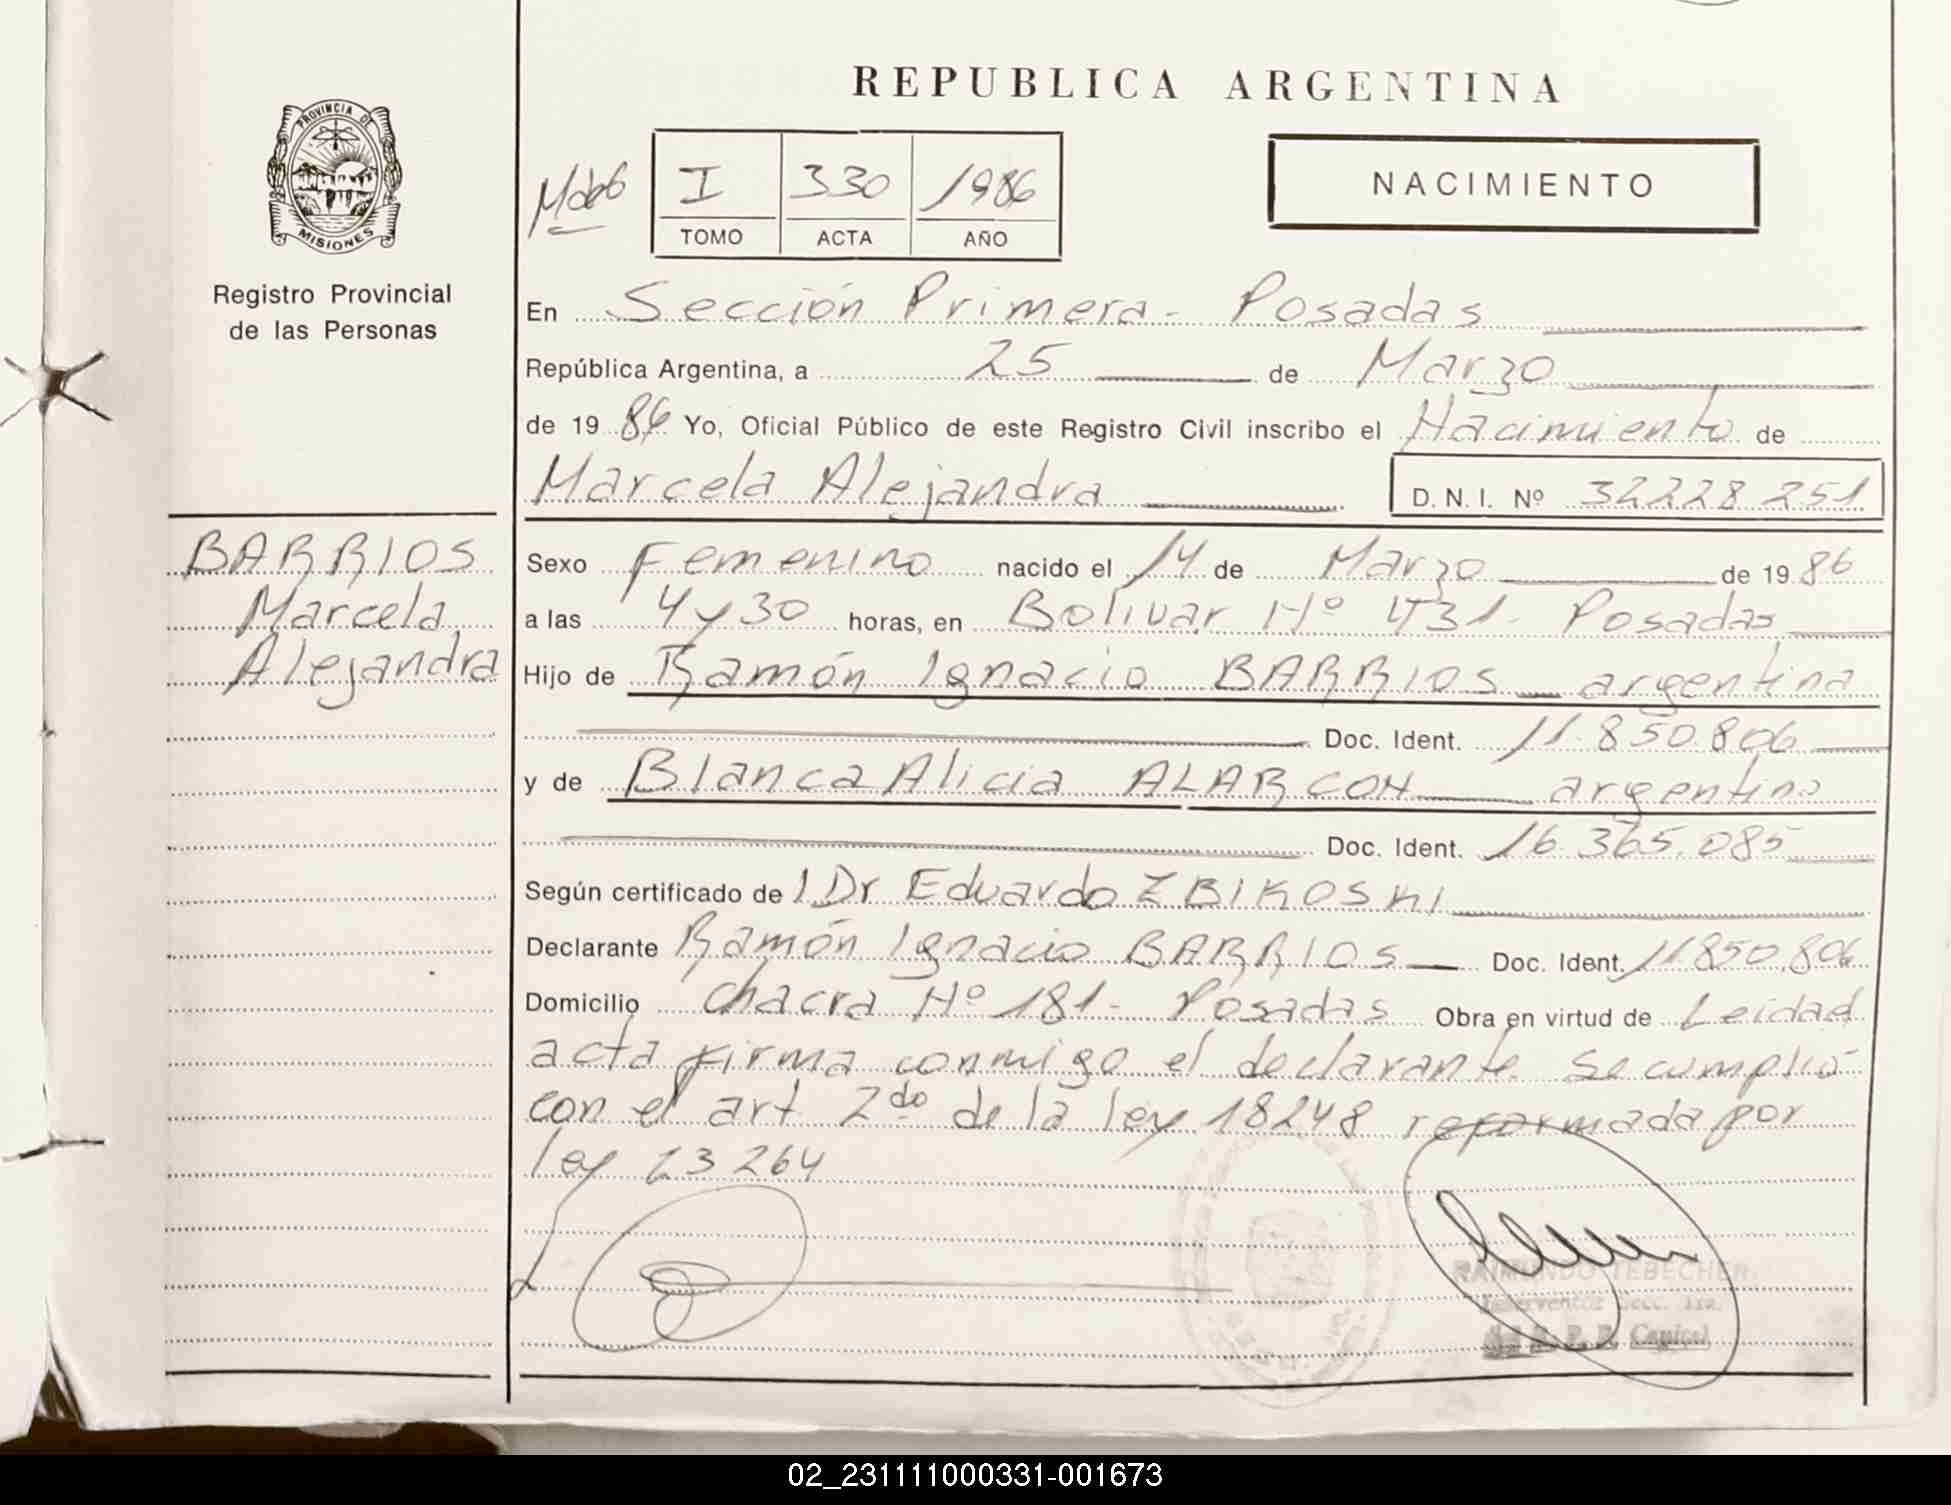 REPUBLICA ARGENTINA
PROVINCIA DE
MISIONES
Registro Provincial
de las Personas
I 330 1986
TOMO ACTA AÑO
NACIMIENTO
En Sección Primera - Posadas
República Argentina, a 25 de Marzo
de 1986 Yo, Oficial Público de este Registro Civil inscribo el Nacimiento de
Marcela Alejandra D. N. I. Nº 32228251
BARRIOS
Marcela
Alejandra
Sexo Femenino nacido el 14 de Marzo de 1986
a las 4 y 30 horas, en Bolivar Nº 431 - Posadas
Hijo de Ramón Ignacio BARRIOS argentina
Doc. Ident. 11.850.806
y de Blanca Alicia ALARCON argentina
Doc. Ident. 16.365.085
Según certificado de l Dr Eduardo ZBIKOSKI
Declarante Ramón Ignacio BARRIOS Doc. Ident. 11850.806
Domicilio Chacra Nº 181 - Posadas Obra en virtud de Leida el
acta firma conmigo el declarante. Se cumplió
con el art 2do de la ley 18248 reformada por
ley 23264
RAIMUNDO TEBECHER
Interventor Secc. 1ra.
R. P. P. Capital
02_231111000331-001673